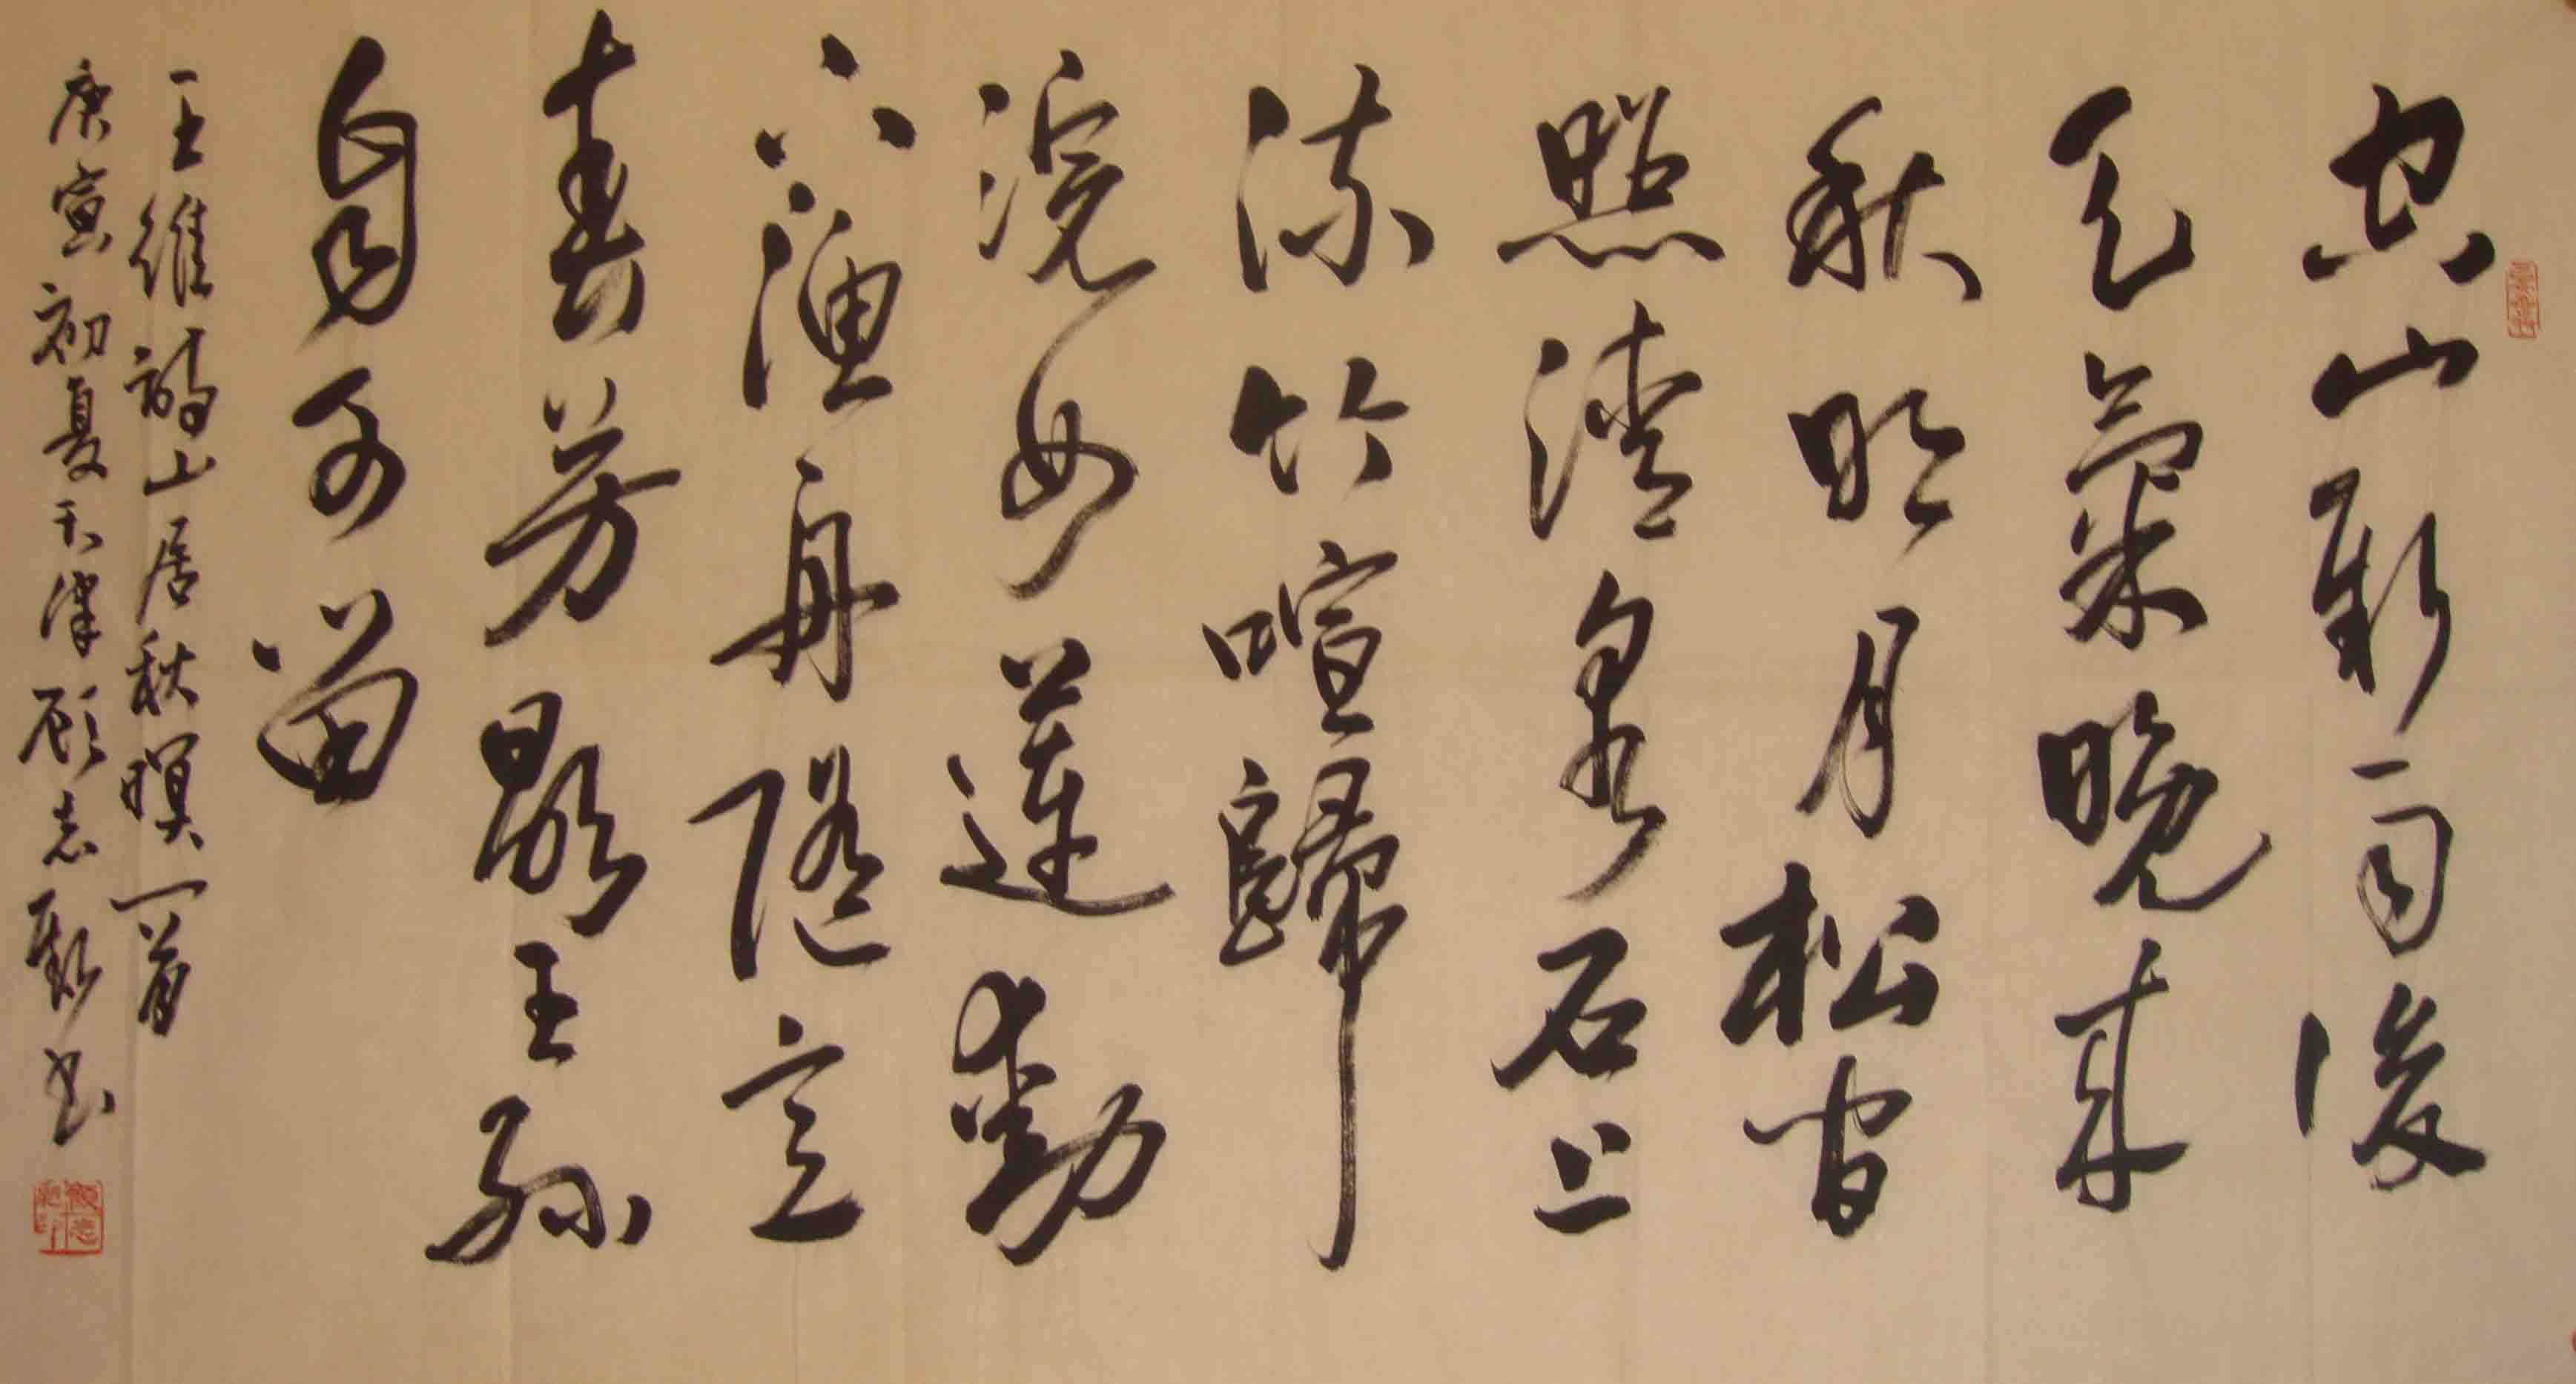 空山新雨後
天氣晚來
秋明月松間
照清泉石上
流竹喧歸
浣女蓮動
下漁舟隨意
春芳歇王孫
自可留
王維詩山居秋暝一首
庚寅初夏天津顧志新書